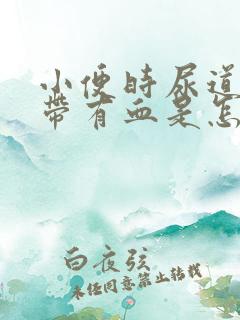 小便时尿道
带有血是怎
白夜弦
未经同意禁止转载